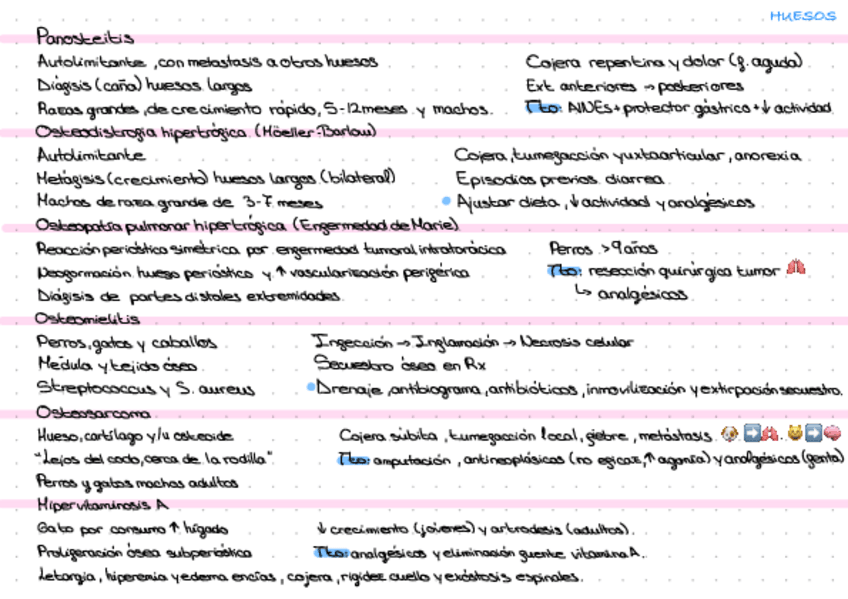 HUESOS
Panosteitis
Autolimitante, con metastasis a otros huesos
Cojera repentina y dolor (f. aguda)
Diáfisis (caña) huesos largos
Ext. anteriores → posteriores
Razas grandes, de crecimiento rápido, 5-12 meses y machos.
Tto: AINEs + protector gástrico + ↓ actividad
Osteodistrofia hipertrófica (Möeller-Barlow)
Autolimitante
Cojera, tumefacción yuxtaarticular, anorexia
Metáfisis (crecimiento) huesos largos (bilateral)
Episodios previos diarrea
Machos de raza grande de 3-7 meses
Ajustar dieta, ↓ actividad y analgésicos
Osteopatía pulmonar hipertrófica (Enfermedad de Marie)
Reacción perióstica simétrica por enfermedad tumoral intratorácica
Perros >9 años
Neoformación hueso perióstico y ↑ vascularización periférica
Tto: resección quirúrgica tumor 🫁
Diáfisis de partes distales extremidades
↳ analgésicos
Osteomielitis
Perros, gatos y caballos
Infección → Inflamación → Necrosis celular
Médula y tejido óseo
Secuestro óseo en Rx
Streptococcus y S. aureus
Drenaje, antibiograma, antibióticos, inmovilización y extirpación secuestro.
Osteosarcoma
Hueso, cartílago y/u osteoide
Cojera súbita, tumefacción local, fiebre, metástasis 🐶➡️🫁. 🐱➡️🧠
"Lejos del codo, cerca de la rodilla"
Tto: amputación, antineoplásicos (no eficaz, ↑ agonía) y analgésicos (fenta)
Perros y gatos machos adultos
Hipervitaminosis A
Gato por consumo ↑ hígado
↓ crecimiento (jóvenes) y artrodesis (adultos).
Proliferación ósea subperióstica
Tto: analgésicos y eliminación fuente vitamina A.
Letargia, hiperemia y edema encías, cojera, rigidez cuello y exóstosis espinales.